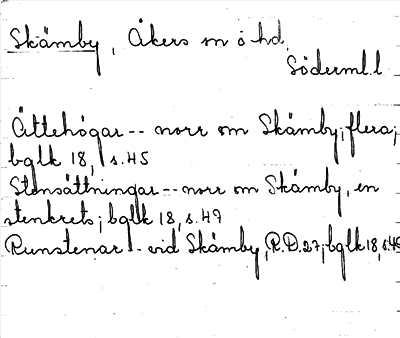 Skämby, Åkers sn o hd,
Söderml. l
Ättehögar -- norr om Skämby, flera;
bglk 18, s. 45
Stensättningar -- norr om Skämby, en
stenkrets; bglk 18, s. 49
Runstenar -- vid Skämby, R.D. 27; bglk 18, s. 49